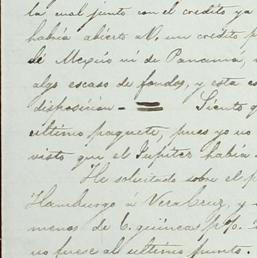 la cual junto con el credito ya
habia abierto a V, un credito p
de Mexico ni de Panama,
algo escaso de fondos, y esta es
disposicion - Siento q
ultimo paquete, pues yo no
visto que el Jupiter habia
He solicitado sobre el p
Hamburgo a Vera Cruz, y
menos de 6. guineas p%.
no fuese al ultimo punto.